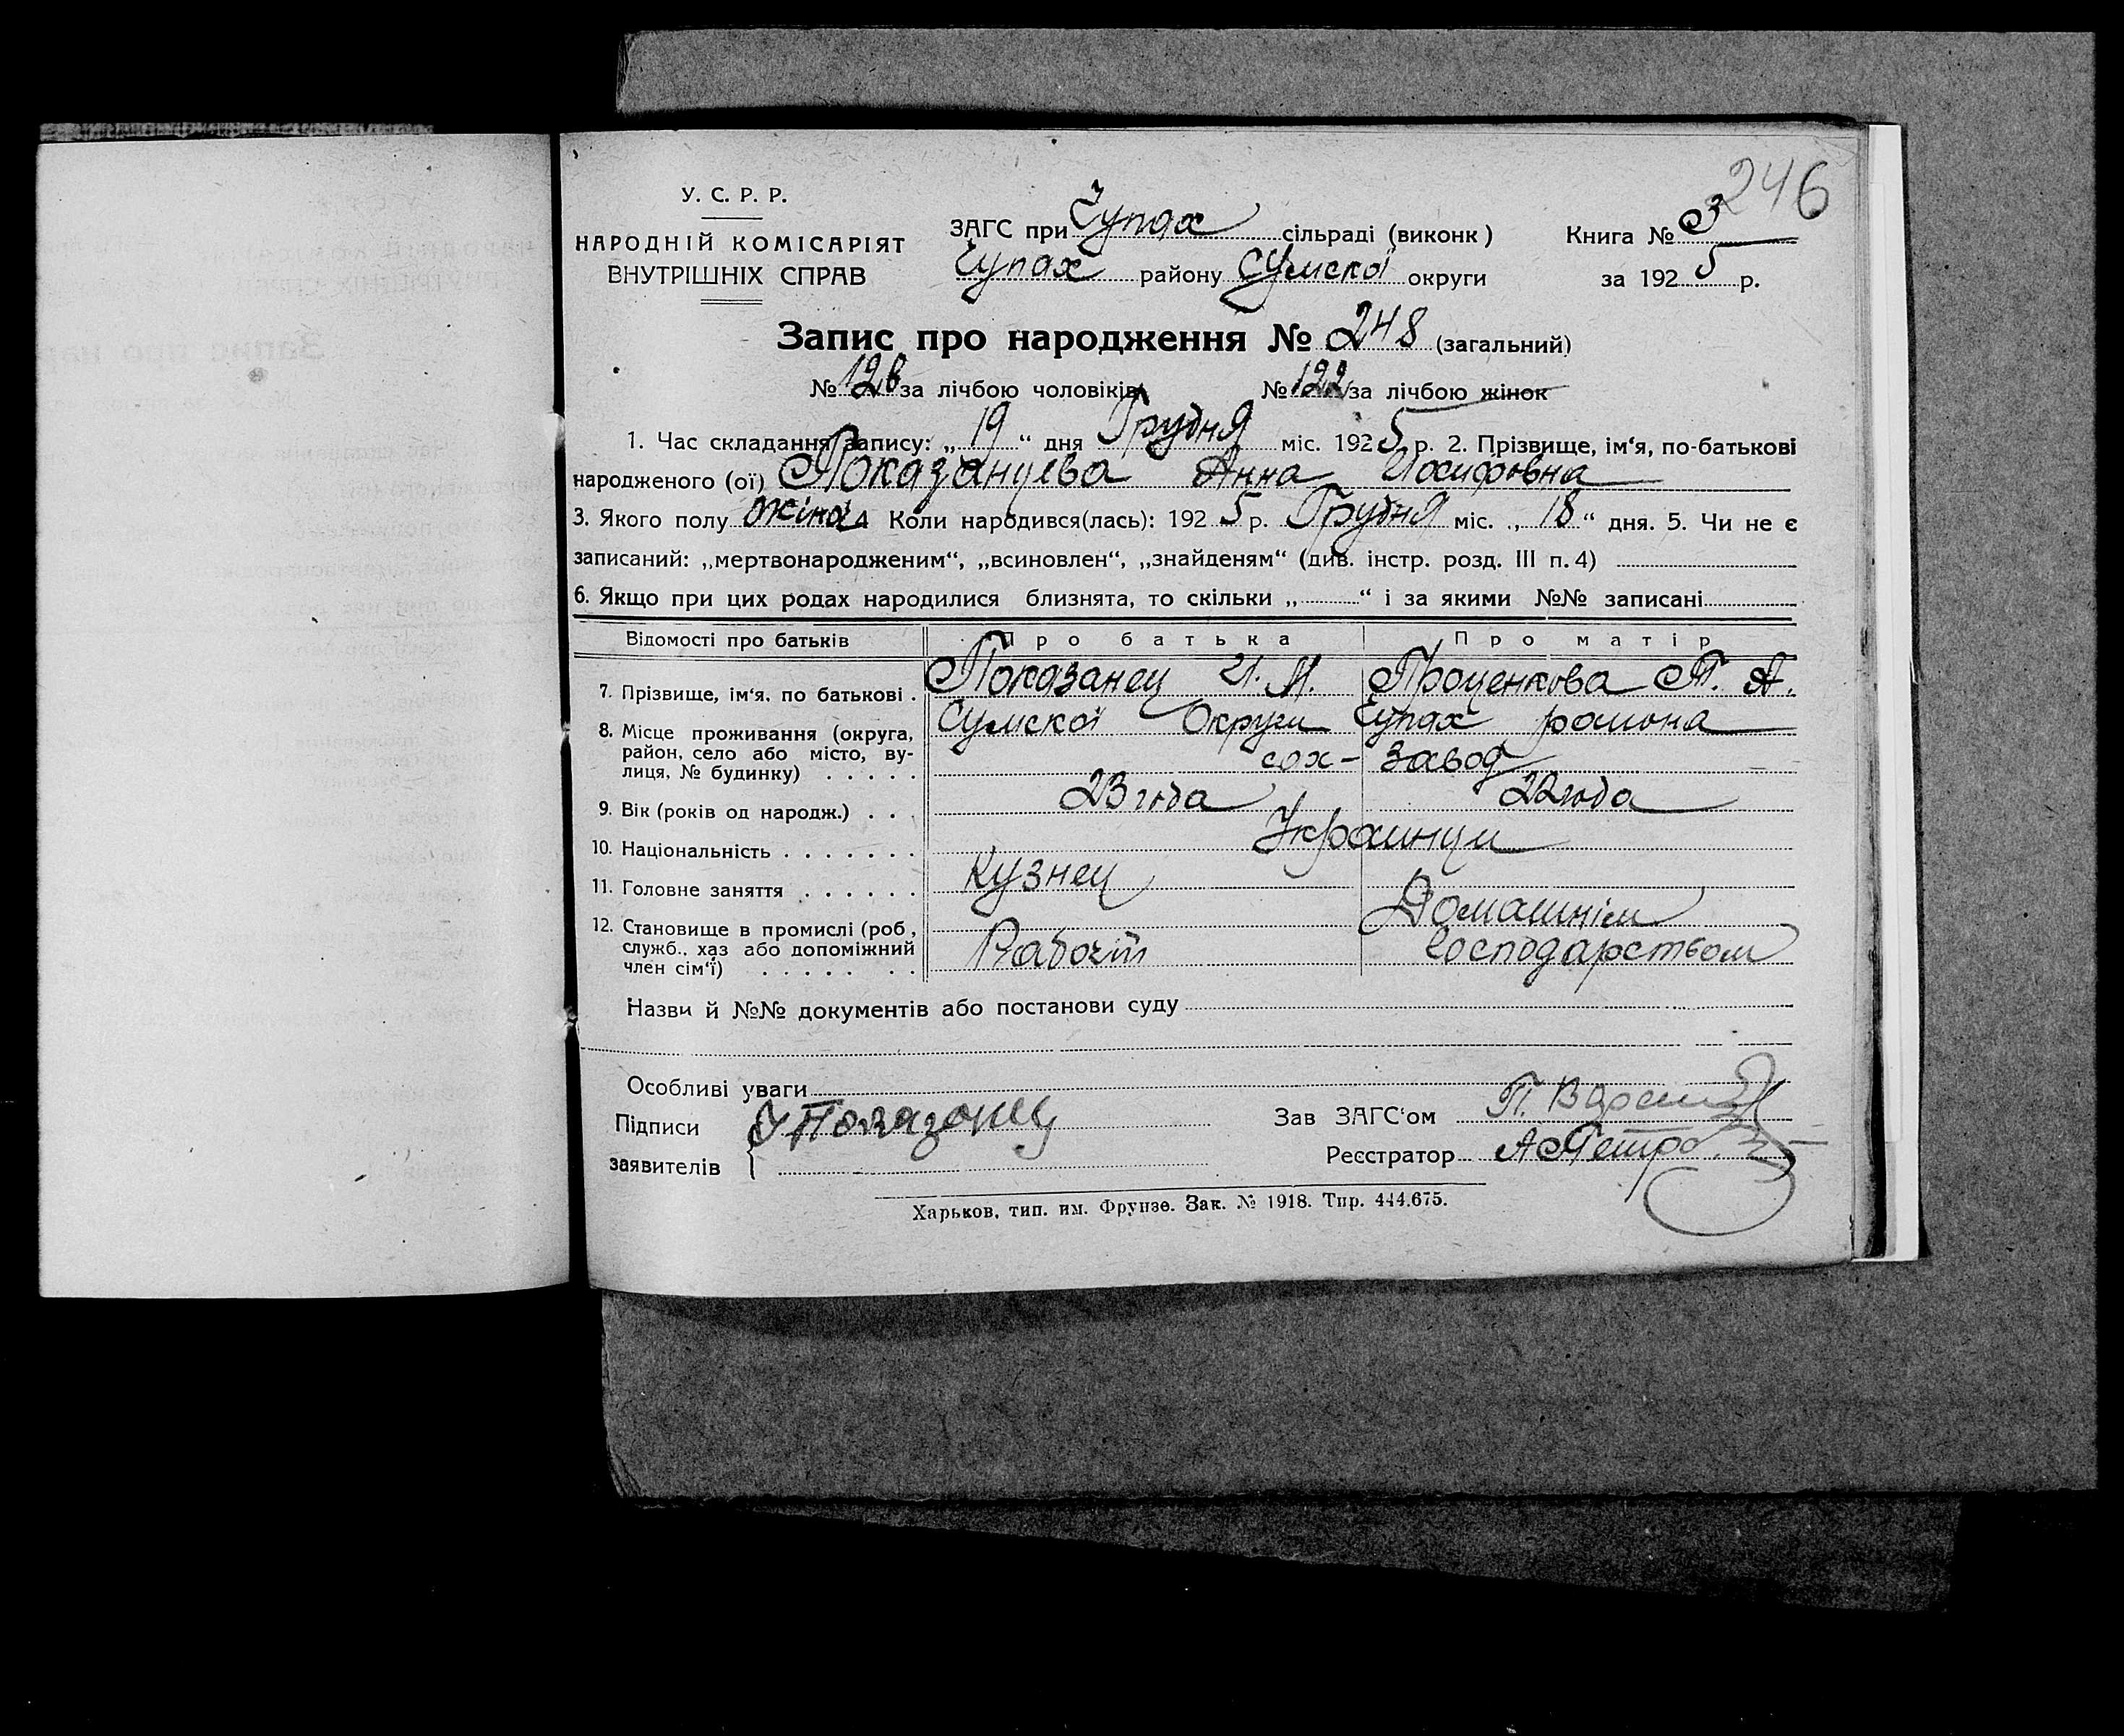 246
У. С. Р. Р.
НАРОДНІЙ КОМІСАРІЯТ
ВНУТРІШНІХ СПРАВ
ЗАГС при Чупах сільраді (виконк)
Чупах району Сумскої округи
Книга № 3
за 1925 р.
Запис про народження № 248 (загальний)
№ 126 за лічбою чоловіків № 122 за лічбою жінок
1. Час складання запису: „19“ дня Грудня міс. 1925 р. 2. Прізвище, ім‘я, по-батькові
народженого (ої) Показанцева Анна Иосифовна
3. Якого полу жіноч 4 Коли народився(лась): 1925 р. Грудня міс. „18“ дня. 5. Чи не є
записаний: „мертвонародженим“, „всиновлен“, „знайденям“ (див. інстр. розд. III п. 4)
6. Якщо при цих родах народилися близнята, то скільки „ “ і за якими №№ записані
Відомості про батьків Про батька Про матір
7. Прізвище, ім‘я, по батькові . Показанец И. М. Проценкова П. А.
8. Місце проживання (округа, Сумскої Округи Чупах района
район, село або місто, ву- сах- завод
лиця, № будинку) . . . . .
9. Вік (років од народж.) . . . 23 года 22 года
10. Національність . . . . . . . Украинци
11. Головне заняття . . . . . . Кузнец Домашнім
12. Становище в промислі (роб,
служб., хаз або допоміжний Рабочій господарством
член сім‘ї) . . . . . . .
Назви й №№ документів або постанови суду
Особливі уваги
Підписи
заявителів
И Показанец
Зав ЗАГС‘ом П.
Реєстратор А Петро
Харьков, тип. им. Фрунзе. Зак. № 1918. Тир. 444.675.